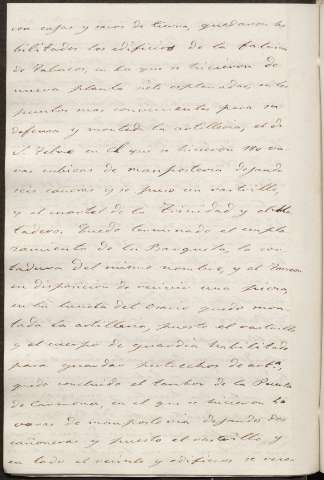 con cajas y sacos de tierra, quedaron ha
bilitados los edificios de la fabrica
de Tabacos, en la que se hicieron de
nueva planta siete esplanadas, en los
puntos mas convenientes para su
defensa y montada la artilleria, el de
S. Telmo en el que se hicieron 110 va
ras cubicas de manposteria dejando
seis cañoneras y se puso un rastrillo
y el cuartel de la Trinidad y el Ma
tadero. Quedo terminado el empla
zamiento de la Barqueta, la cor
tadura del mismo nombre, y el
en disposicion de recivir una pieza,
en la luneta del quedo mon
tada la artilleria, puesto el rastrillo
y el cuerpo de guardia habilitado
para guardar pertrechos de art.ª,
quedo concluido el tambor de la Puerta
de Carmona, en el que se hicieron
varas de manposteria dejando dos
cañoneras y puesto el rastrillo, y
en todo el recinto y edificios se